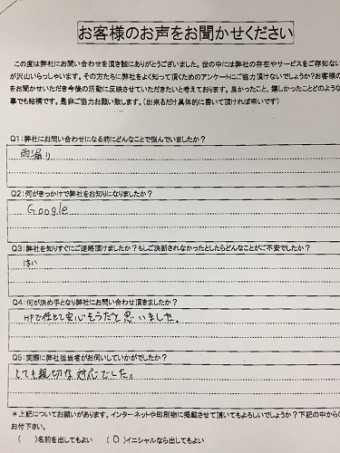 お客様のお声をお聞かせください
この度は弊社にお問い合わせを頂き誠にありがとうございました。世の中には弊社の存在やサービスをご存知ない
が沢山いらっしゃいます。その方たちに弊社をよく知って頂くためのアンケートにご協力頂けないでしょうか?お客様の
をお聞かせいただき今後の活動に反映させていただきたいと考えております。良かったこと、嬉しかったことどのような
事でも結構です。是非ご協力お願い致します。(出来るだけ具体的に書いて頂ければ幸いです)
Q1:弊社にお問い合わせになる前にどんなことで悩んでいましたか?
雨漏り
Q2:何がきっかけで弊社をお知りになりましたか?
Google
Q3:弊社を知りすぐにご連絡頂けましたか?もしご決断されなかったとしたらどんなことがご不安でしたか?
はい
Q4:何が決め手となり弊社にお問い合わせ頂きましたか?
HPで 安心そうだと思いました。
Q5:実際に弊社担当者がお伺いしていかがでしたか?
とても親切な対応でした。
*上記についてお願いがあります。インターネットや印刷物に掲載させて頂いてもよろしいでしょうか?下記の中から
お付下さい。
( )名前を出してもよい (O)イニシャルなら出してもよい